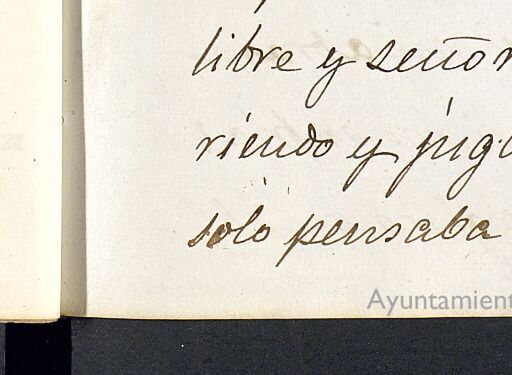 libre y señor
riendo y jug
solo pensaba
Ayuntamient